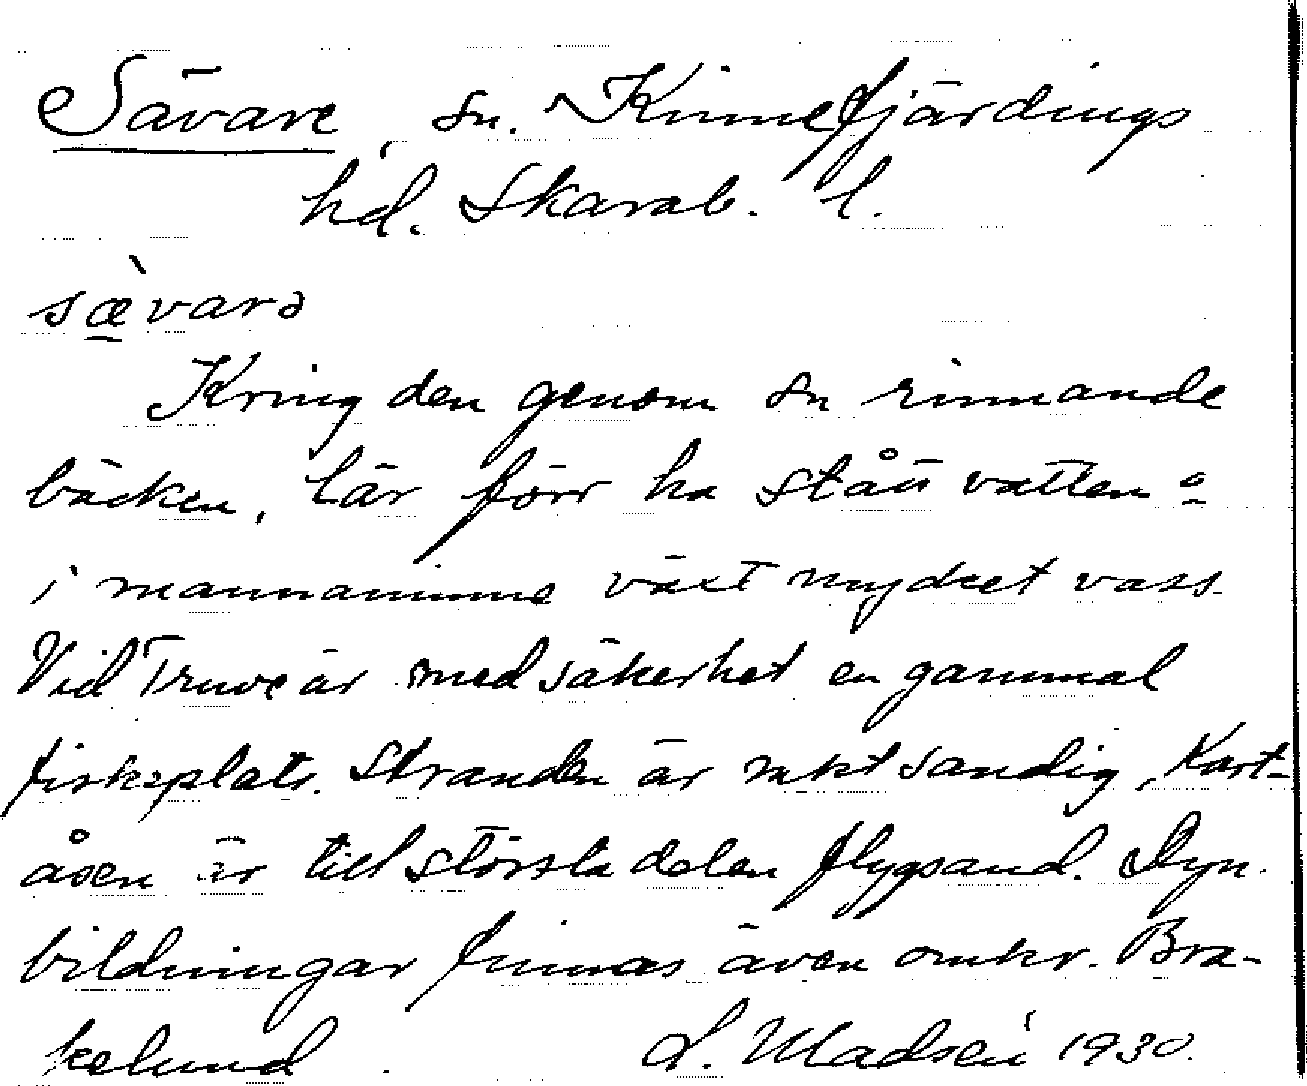 Sävare, sn. Kinnefjärdings
hd. Skarab. l.
sæ̀varə
Kring den genom sn rinnande
bäcken, lär förr ha stått vatten o
i mannaminne växt mycket vass.
Vid Truve är med säkerhet en gammal
fiskeplats. Stranden är mkt sandig, Kart-
åsen är till största delen flygsand. Dyn-
bildningar finnas även omkr. Bra-
kelund. L. Madsén 1930.